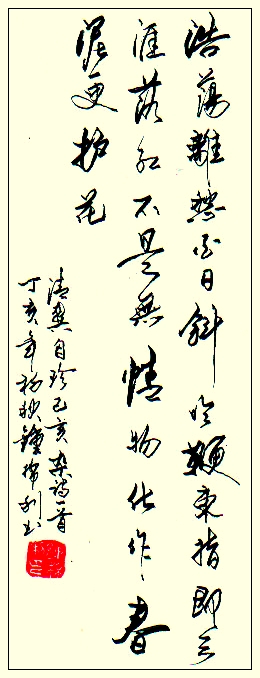 浩蕩離愁白日斜吟鞭東指即天
涯落紅不是無情物化作春
泥更护花
清龔自珍己亥杂诗一首
丁亥年初秋鍾书